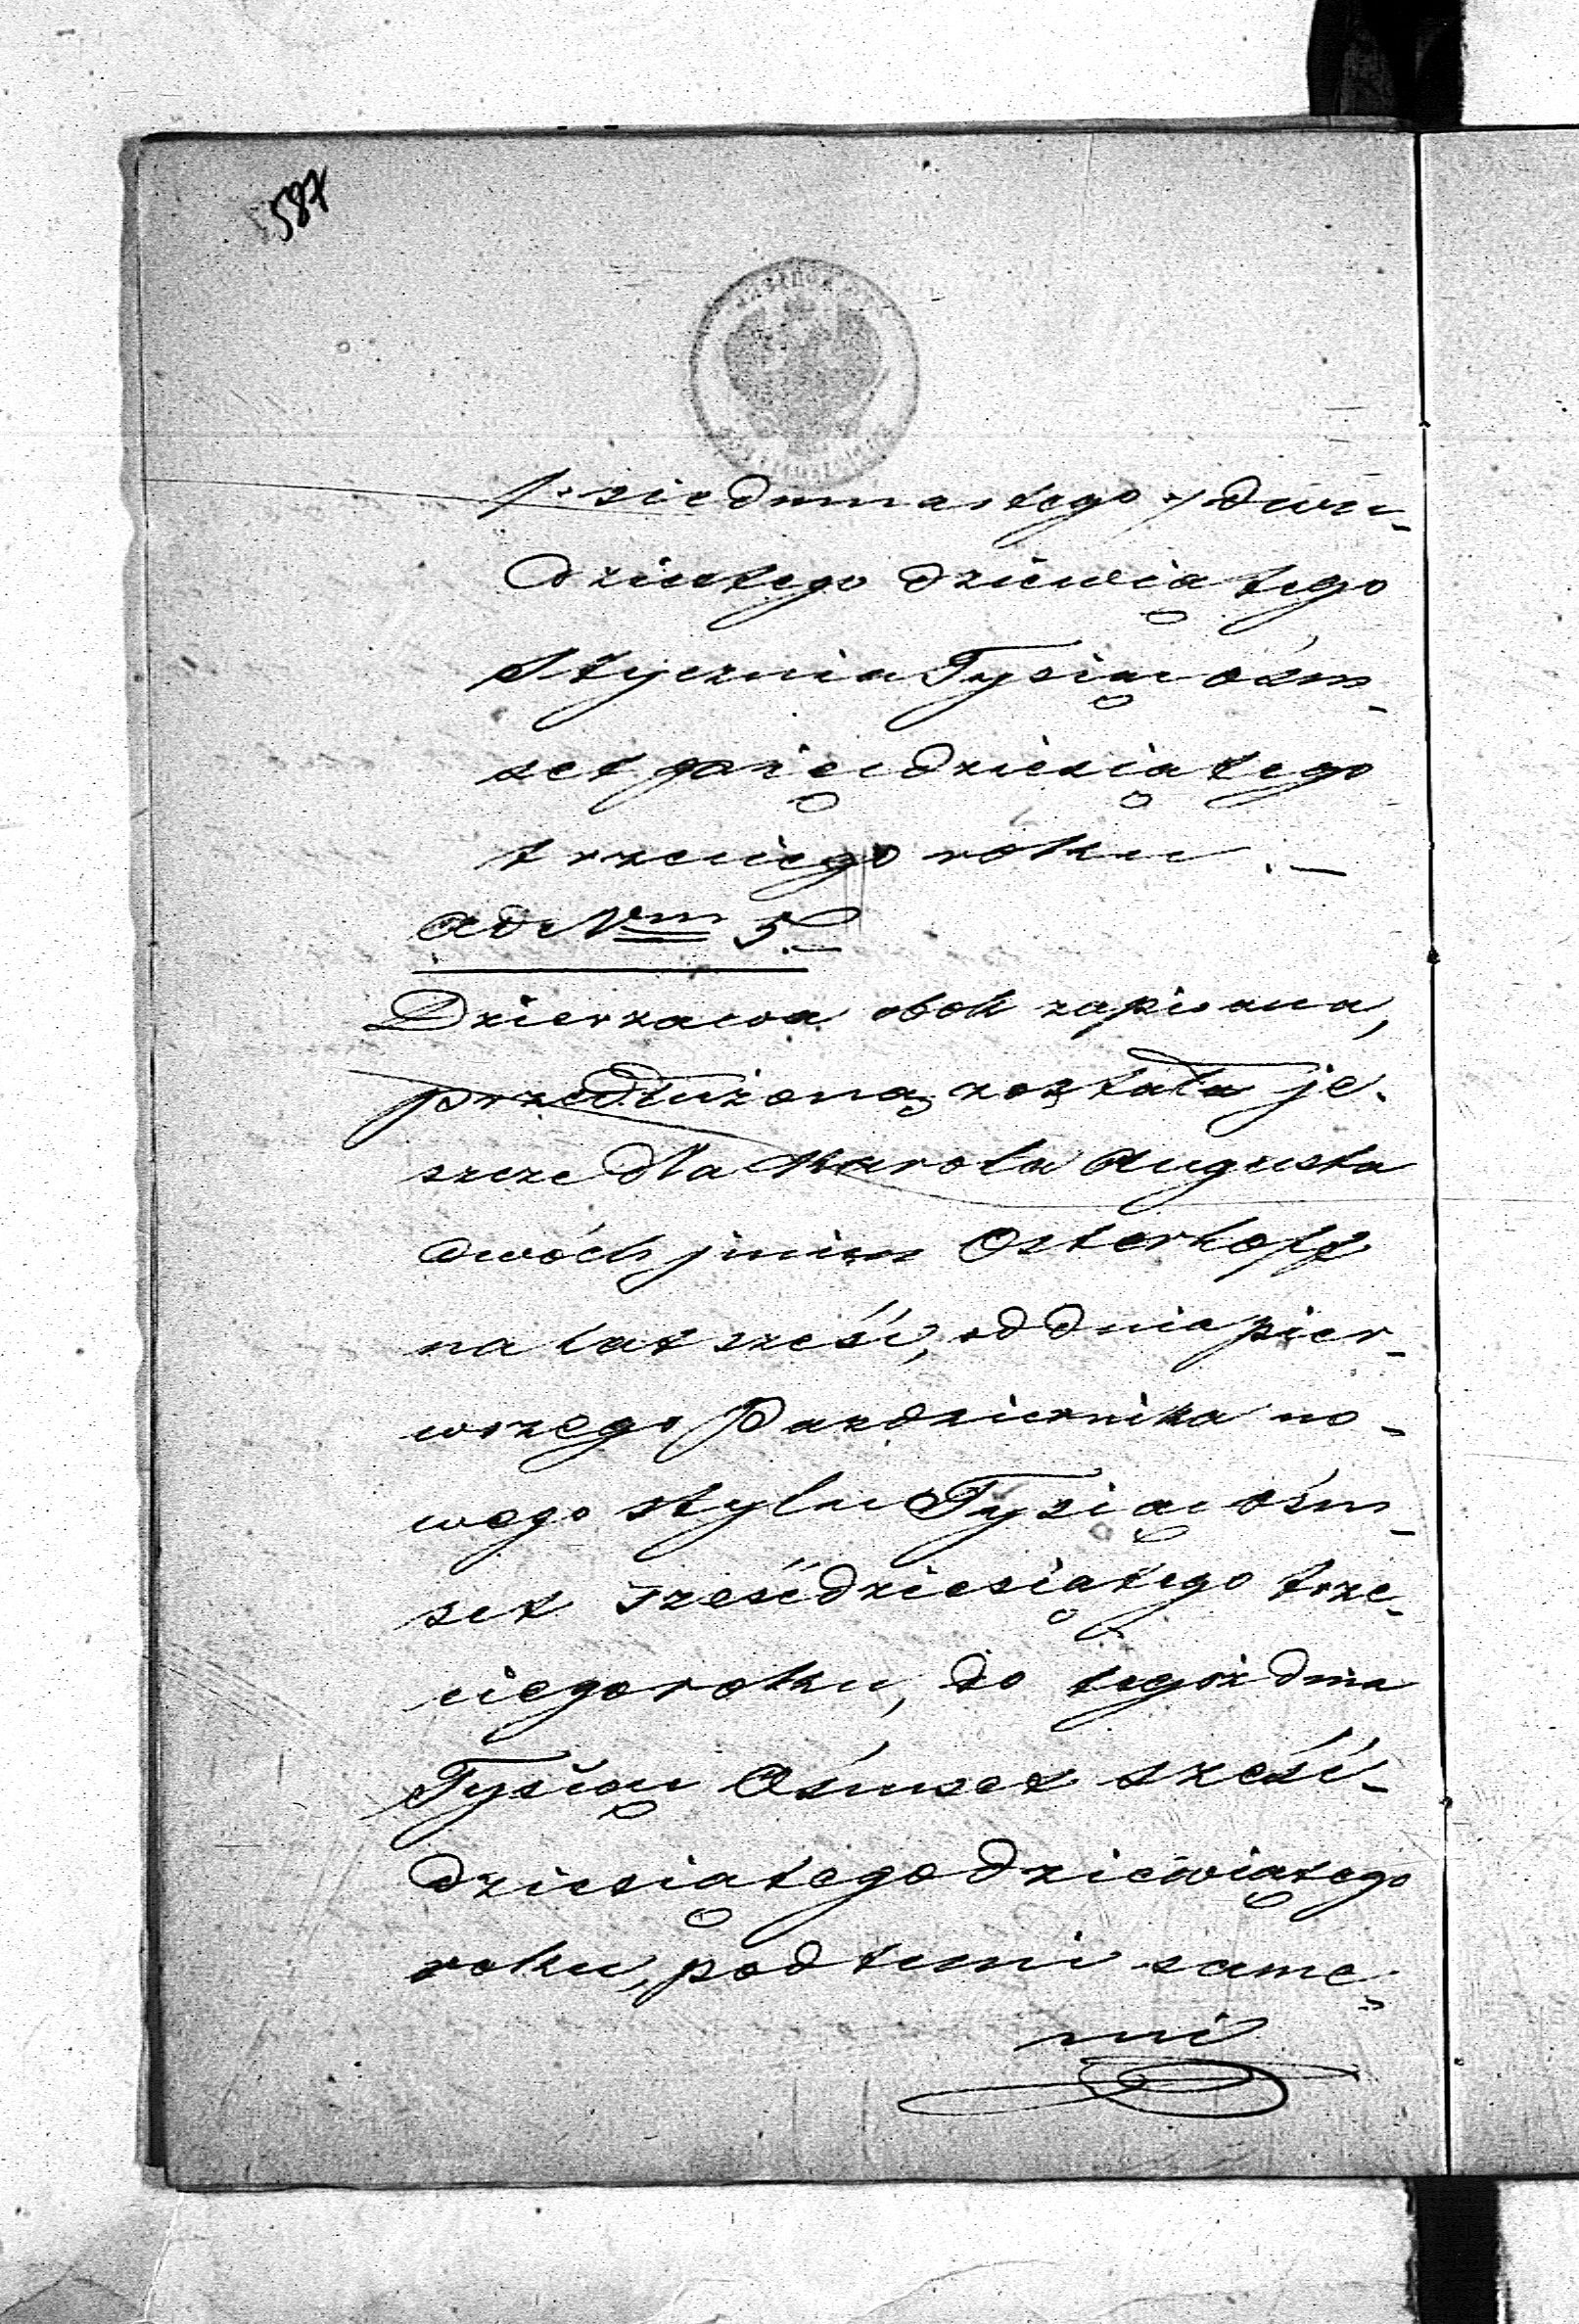 587
/: siedmnastego :/ dwu-
dziestego dziewiątego
Stycznia Tysiąc ośm-
set pięćdziesiątego
trzeciego roku.—
Ad Num 5.
Dzierzawa obok zapisana,
przedłużoną została je-
szcze dla Karola Augusta
dwóch imion Osterhoff
na lat sześć, od dnia pier-
wszego Pazdziernika no-
wego stylu Tysiąc ośm-
set sześćdziesiątego trze-
ciego roku, do tegoż dnia
Tysiąc Ośmset sześć-
dziesiątego dziewiątego
roku, pod temi same-
mi